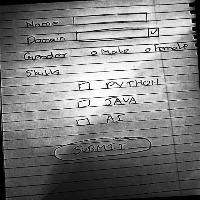 Name
Domain
Gender o Male o Female
Skills
PYTHON
JAVA
AI
SUBMIT